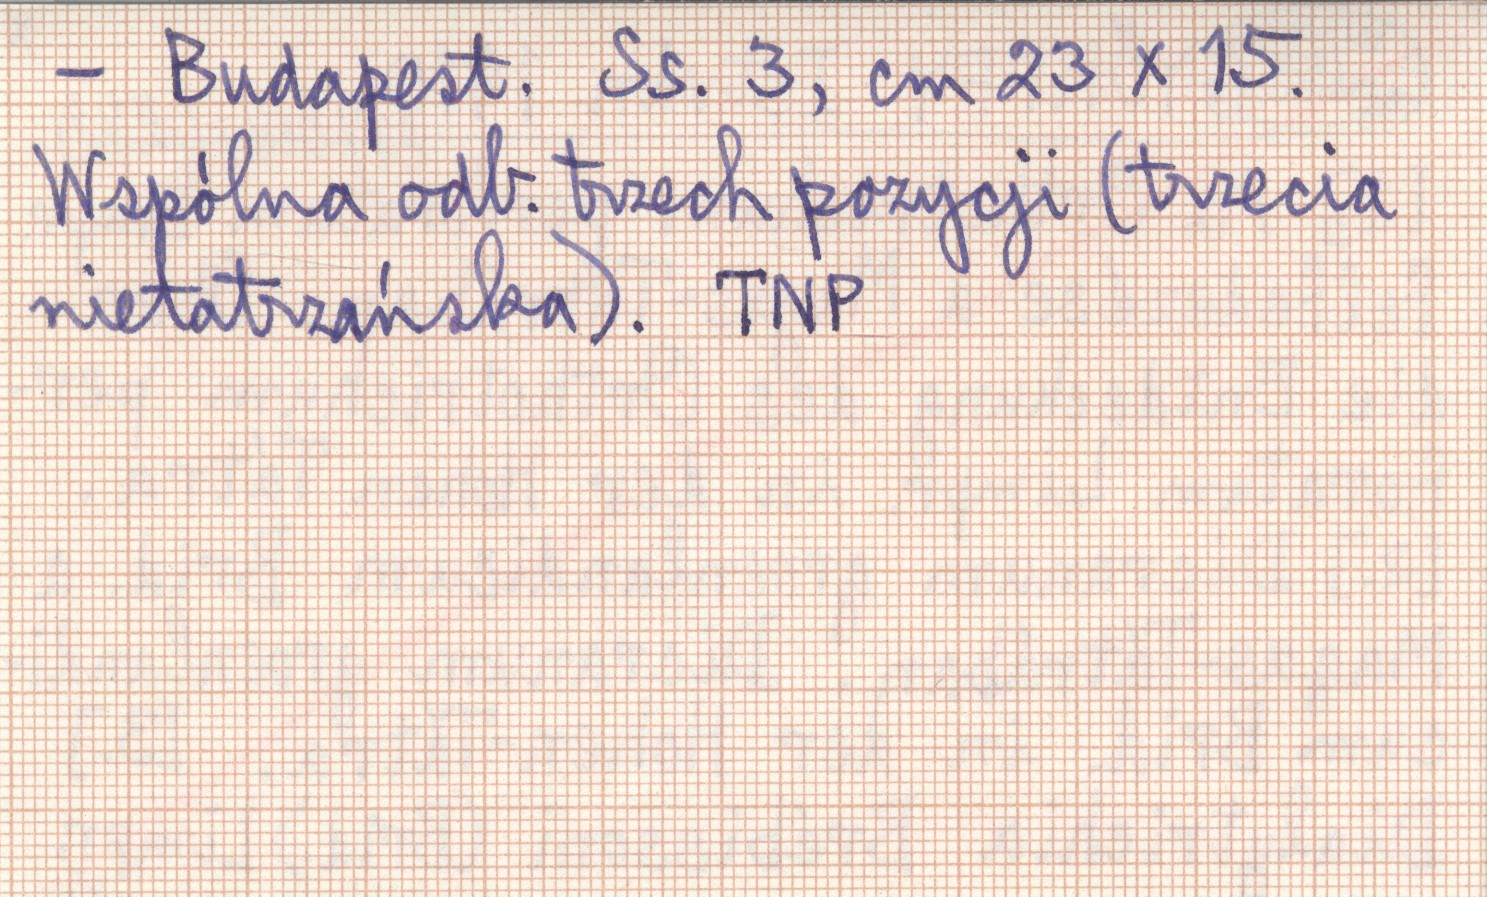 – Budapest. Ss. 3, cm 23 x 15.
Wspólna odb. trzech pozycji (trzecia
nietatrzańska). TNP